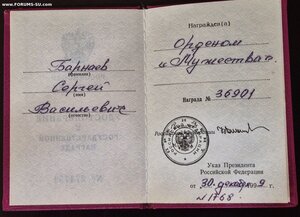 www.FORUMS-SU.com
Барнаев
(фамилия)
Сергей
(имя)
Васильевич
(отчество)
Награжден(а)
Орденом
„Мужества”
НАГРАДА № 36901
Указ Президента
Российской Федерации
от 30 декабря
№ 1768